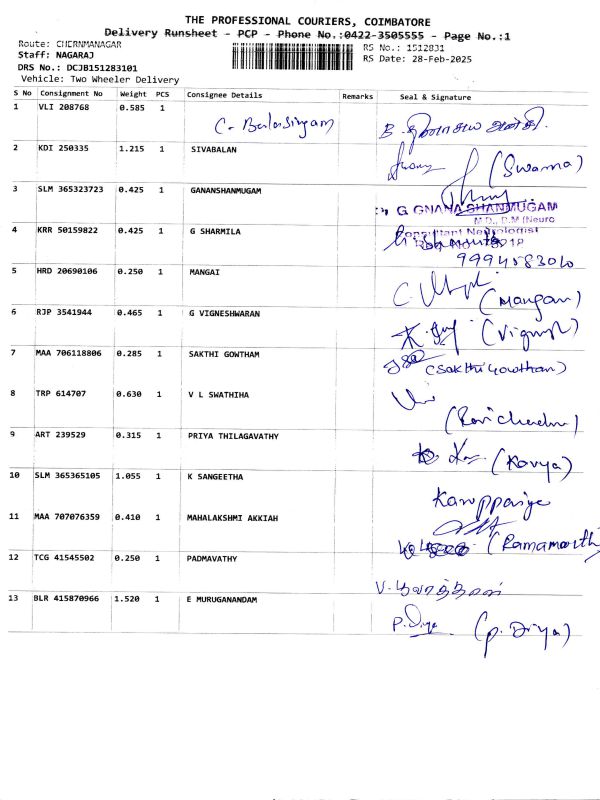 THE PROFESSIONAL COURIERS, COIMBATORE
Delivery Runsheet - PCP - Phone No.:0422-3505555 - Page No.:1
Route: CHERNMANAGAR RS No.: 1512831
Staff: NAGARAJ RS Date: 28-Feb-2025
DRS No.: DCJB151283101
Vehicle: Two Wheeler Delivery
S No Consignment No Weight PCS Consignee Details Remarks Seal & Signature
1 VLI 208768 0.585 1
C. Balasingam
2 KDI 250335 1.215 1 SIVABALAN
(Swarna)
3 SLM 365323723 0.425 1 GANANSHANMUGAM
G GNANA SHANMUGAM
M.D., D.M (Neuro
Consultant Neurologist
4 KRR 50159822 0.425 1 G SHARMILA
9994583010
5 HRD 20690106 0.250 1 MANGAI
(Mangai)
6 RJP 3541944 0.465 1 G VIGNESHWARAN
(Vignesh)
7 MAA 706118806 0.285 1 SAKTHI GOWTHAM
(Sakthi Gowtham)
8 TRP 614707 0.630 1 V L SWATHIHA
9 ART 239529 0.315 1 PRIYA THILAGAVATHY
(Kavya)
10 SLM 365365105 1.055 1 K SANGEETHA
11 MAA 707076359 0.410 1 MAHALAKSHMI AKKIAH
(Ramamoorth
12 TCG 41545502 0.250 1 PADMAVATHY
13 BLR 415870966 1.520 1 E MURUGANANDAM
P. Divya (P. Divya)